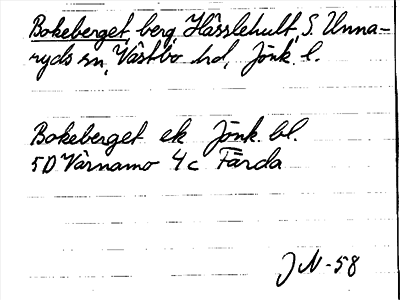 Bokeberget, berg, Hässlehult, S. Unna-
ryds sn, Västbo hd, Jönk. l.
Bokeberget ek Jönk. bl.
5D Värnamo 4c Färda
JN-58